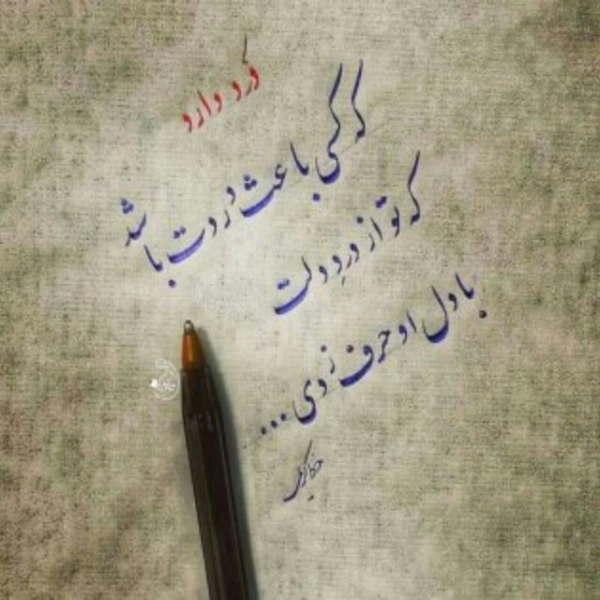 درد دارد
که کسی باعث دردت باشد
که تو از درد دلت
با دل او حرف زدی...